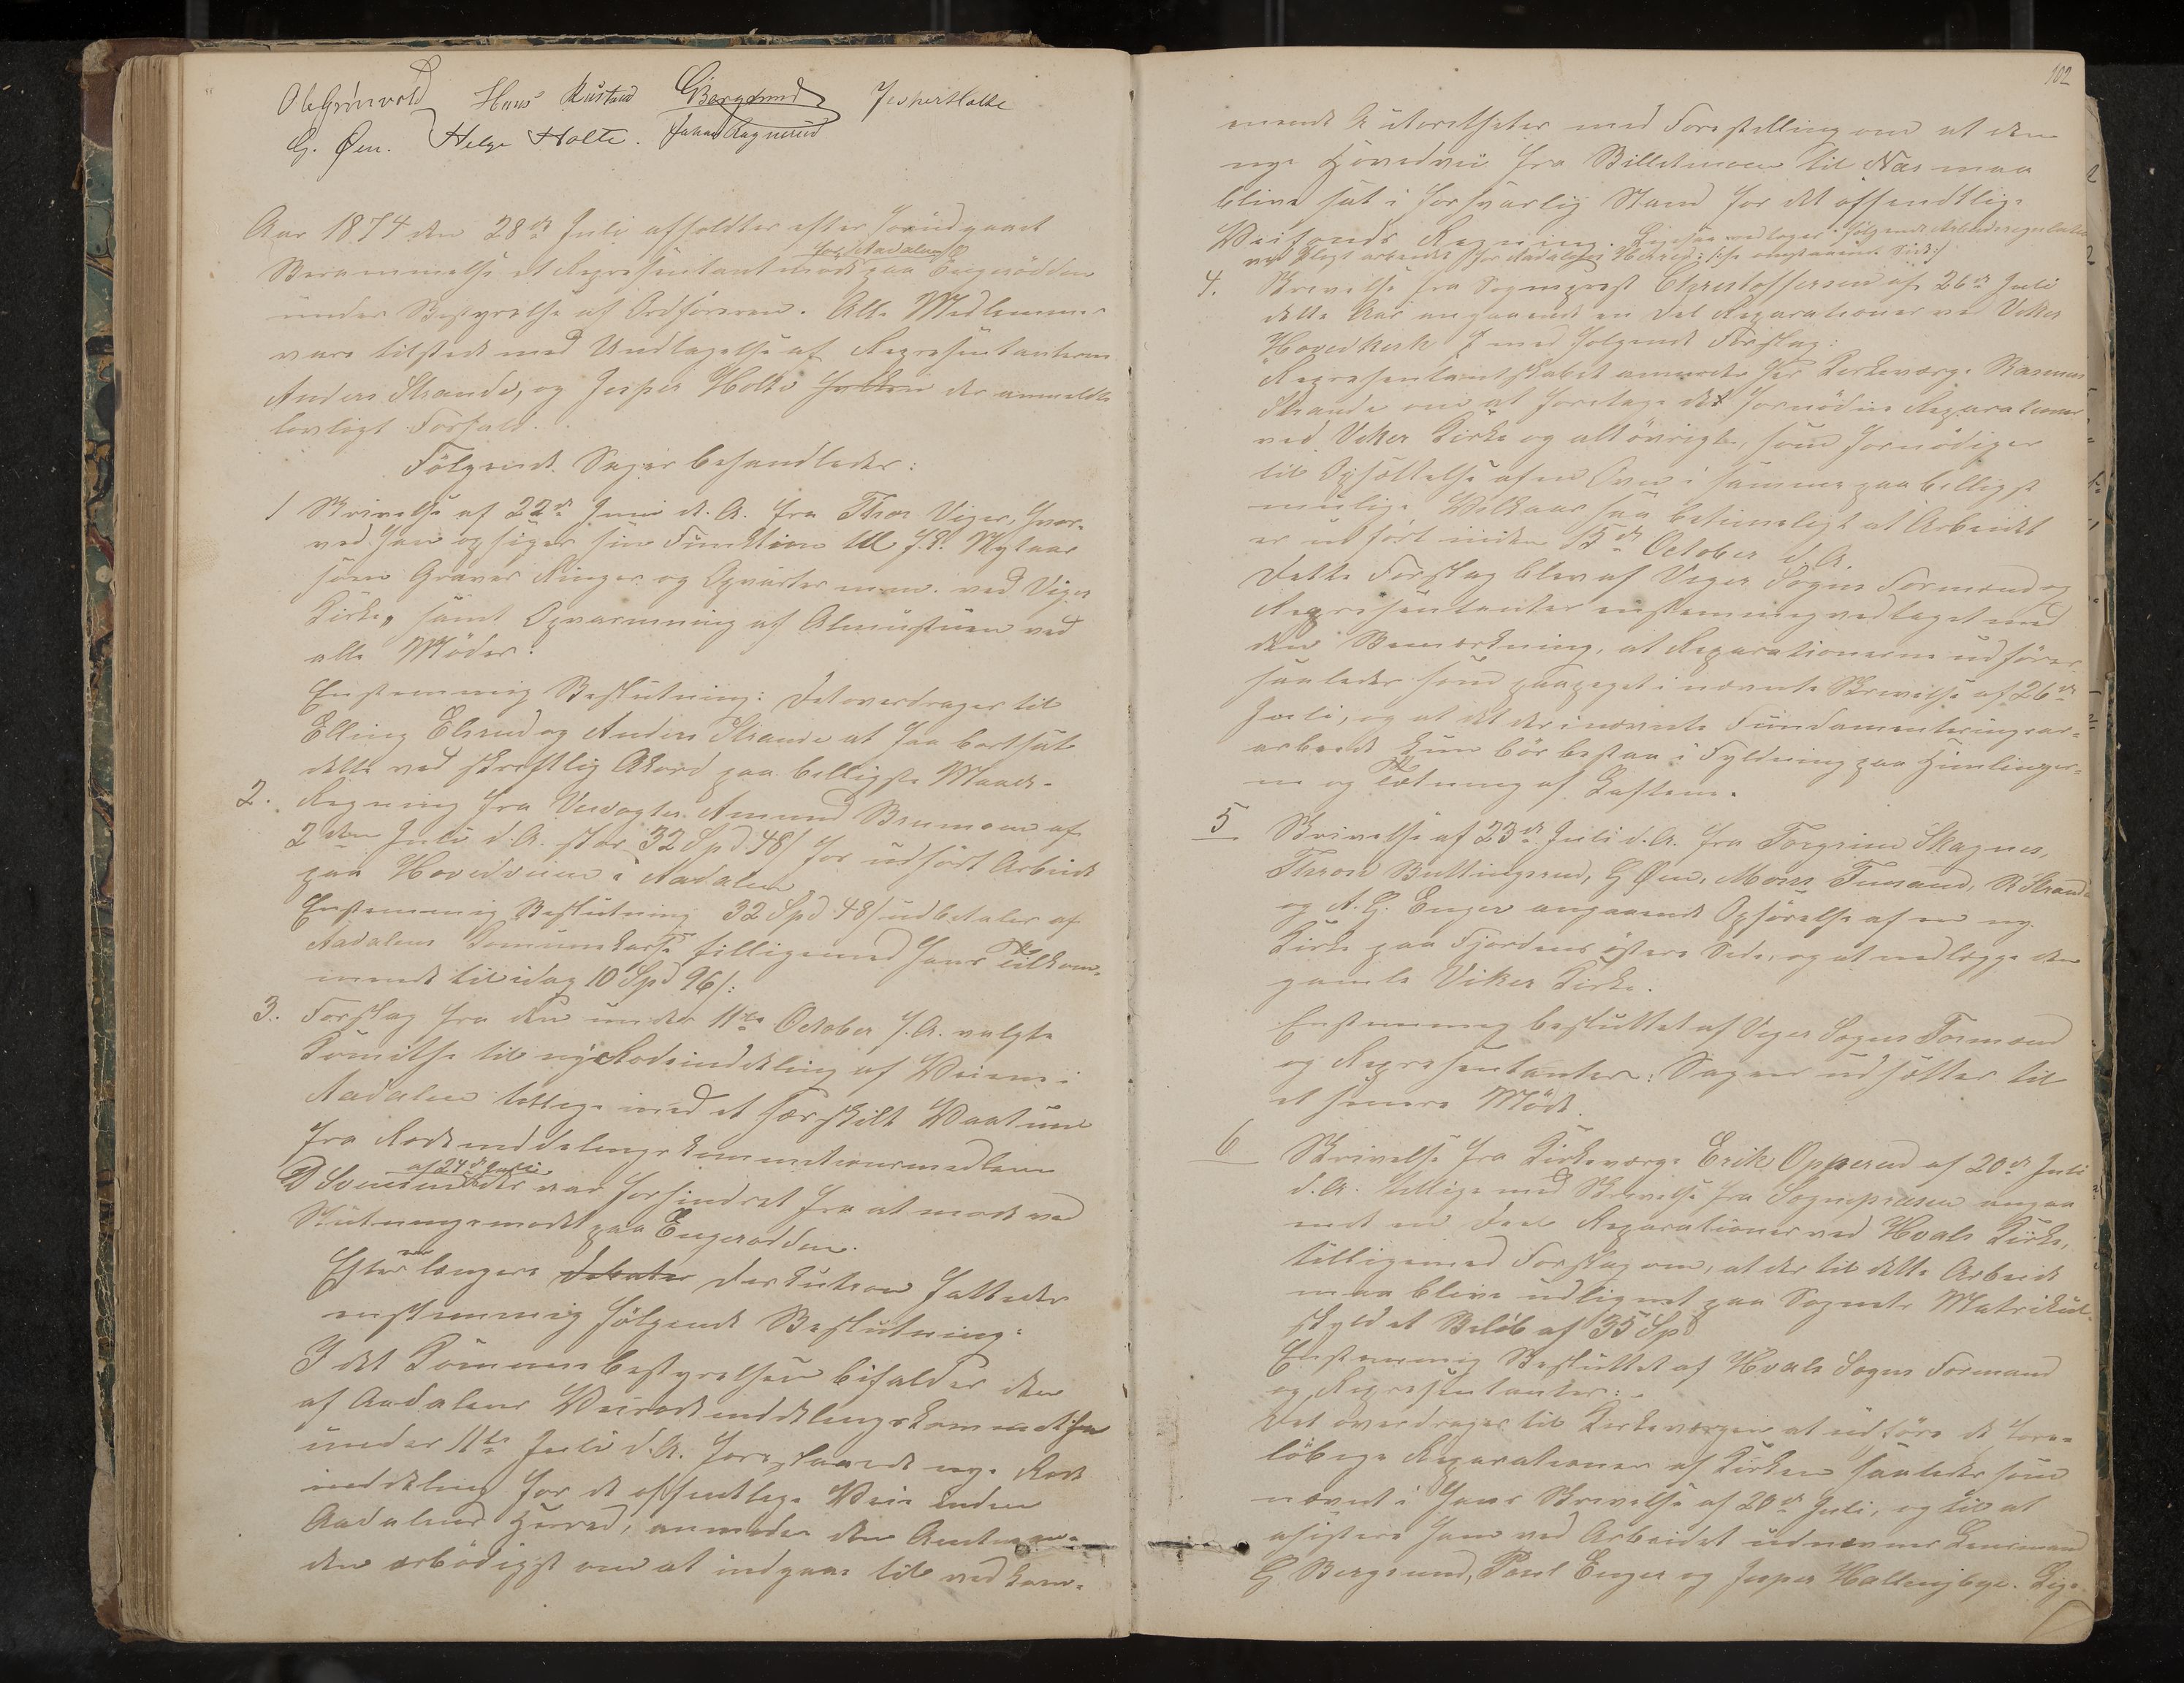 Ole Grönvold Hans Kustad GBergsund Jesper Holte
G. Øen. Helge Holte. Johan Ragnerud
Aar 1874 den 28de Juli afholdtes efter forudgaaet
for Aadalen
Berammelse et Repræsentantmöde paa Engerodden
under Bestyrelse af Ordföreren. Alle Medlemmer
vare tilstede med Undtagelse af Repræsentanterne
Anders Strande, og Jesper Holte der anmeldte
lovligt Forfald.
Fölgende Sager behandledes:
1 Skrivelse af 22de Juni d. A. fra Thor Viger, hvor-
ved han opsiger sin Funktion til f. K. Nytaar
som Graver Ringer og Opvarter m.m. ved Viger
Kirke, samt Opvarmning af Almustuen ved
alle Möder.
Enstemmig Beslutning: Det overdrages til
Elling Elsrud og Anders Strande at faa bortsat
dette ved skriftlig Akord paa billigste Maade.
2. Regning fra Veivogter Amund Brumoen af
2den Juli d. A. stor 32 Spd 48 / for udfört Arbeide
paa Hovedveien i Aadalen
Enstemmig Beslutning 32 Spd 48 / udbetales af
Aadalens Komunekasse tilligemed hans Tilkom-
mende til idag 10 Spd 96 /:
3. Forslag fra den under 11te October f. A. valgte
Komitee til ny Rodeinddeling af Veiene i
Aadalen tillige med et særskilt Votum
fra Rodeinddelingskommissionsmedlem
af 24de Juli
D Svensen der var forhindret fra at möde ved
Slutningsmödet paa Engerodden.
Efter en længere Debatter Diskution fattedes
enstemmig fölgende Beslutning:
I det Kommunebestyrelsen bifalder den
af Aadalens Veirodeinddelingskommission
under 11te Juli d. A. foreslaaede nye Rode
inddeling for de offentlige Veie inden
Aadalens Herred, anmodes den Amtmanden
den ærbödigst om at indgaae til vedkom-
102
mende Autoriteter med Forestilling om at den
nye Hovedvei fra Billetmoen til Næs maa
blive sat i forsvarlig Stand for det offentlige
Veifonds Regning. Ligesaa vedtoges fölgende Arbeidsregulativ
ved Pligtarbeidet for Aadalens Herred: /: se omstaaende Side :/
4. Skrivelse fra Sogneprest Christoffersen af 26de Juli
dette Aar angaaende en Del Reparationer ved Viker
Hovedkirke med fölgende Forslag:
Repræsentantskabet anmoder Hr Kirkeværge Rasmus
Strande om at foretage det fornödne Reparationer
ved Viker Kirke og alt övrigt, som fornödiges
til Opsættelse af en Ovn i samme paa billigst
mulige Vilkaar saa betimeligt at Arbeidet
er udfört inden 15de October d. A.
Dette Forslag blev af Viger Sogns Formænd og
Repræsentanter enstemmig vedtaget med
den Bemærkning, at Reparationerne udföres
saaledes som paapeget i nævnte Skrivelse af 26de
Juli, og at det der i nævnte Fundamenteringsar-
arbeide kun bör bestaa i Fyldning paa Himlinger-
ne og Tætning af Kassen.
5 Skrivelse af 23de Juli d. A. fra Torgrim Skagnes,
Thron Buttingsrud, G Øen, Moses Finsand, R Strande
og A. G. Enger angaaende Opförelse af en ny
Kirke paa Fjordens östere Side, og at nedlægge den
gamle Viker Kirke.
Enstemmig besluttet af Viger Sogns Formænd
og Repræsentanter: Sagen udsættes til
et senere Möde.
6 Skrivelse fra Kirkeværge Erik Opperud af 20de Juli
d. A. tillige med Skrivelse fra Sognepresten angaa
ende en Deel Reparationer ved Hvals Kirke,
tilligemed Forslag om, at der til dette Arbeide
maa blive udlignet paa Sognets Matrikul-
skyld et Belöb af 35 Spd
Enstemmig Besluttet af Hvals Sogns Formænd
og Repræsentanter:
Det overdrages til Kirkeværgen at udföre de fore-
löbige Reparationer af Kirken saaledes som
nævnt i hans Skrivelse af 20de Juli, og til at
assistere ham ved Arbeidet udnævnes Lensmand
G Bergsund, Povel Enger og Jesper Hallingbye. Lige-